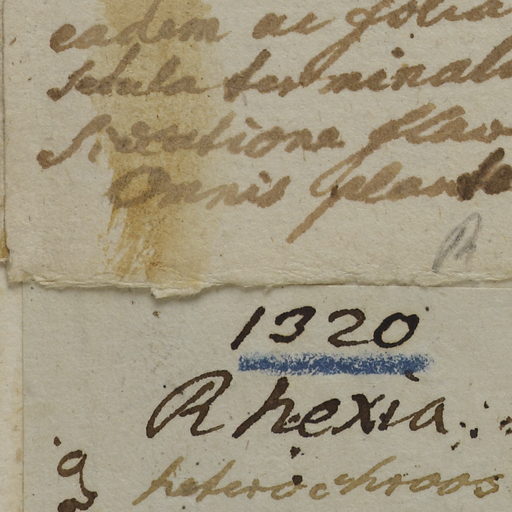 eadem ac folia
setula terminali
Siccatione flav
Omnis planta
1320
Rhexia.
heterochroos